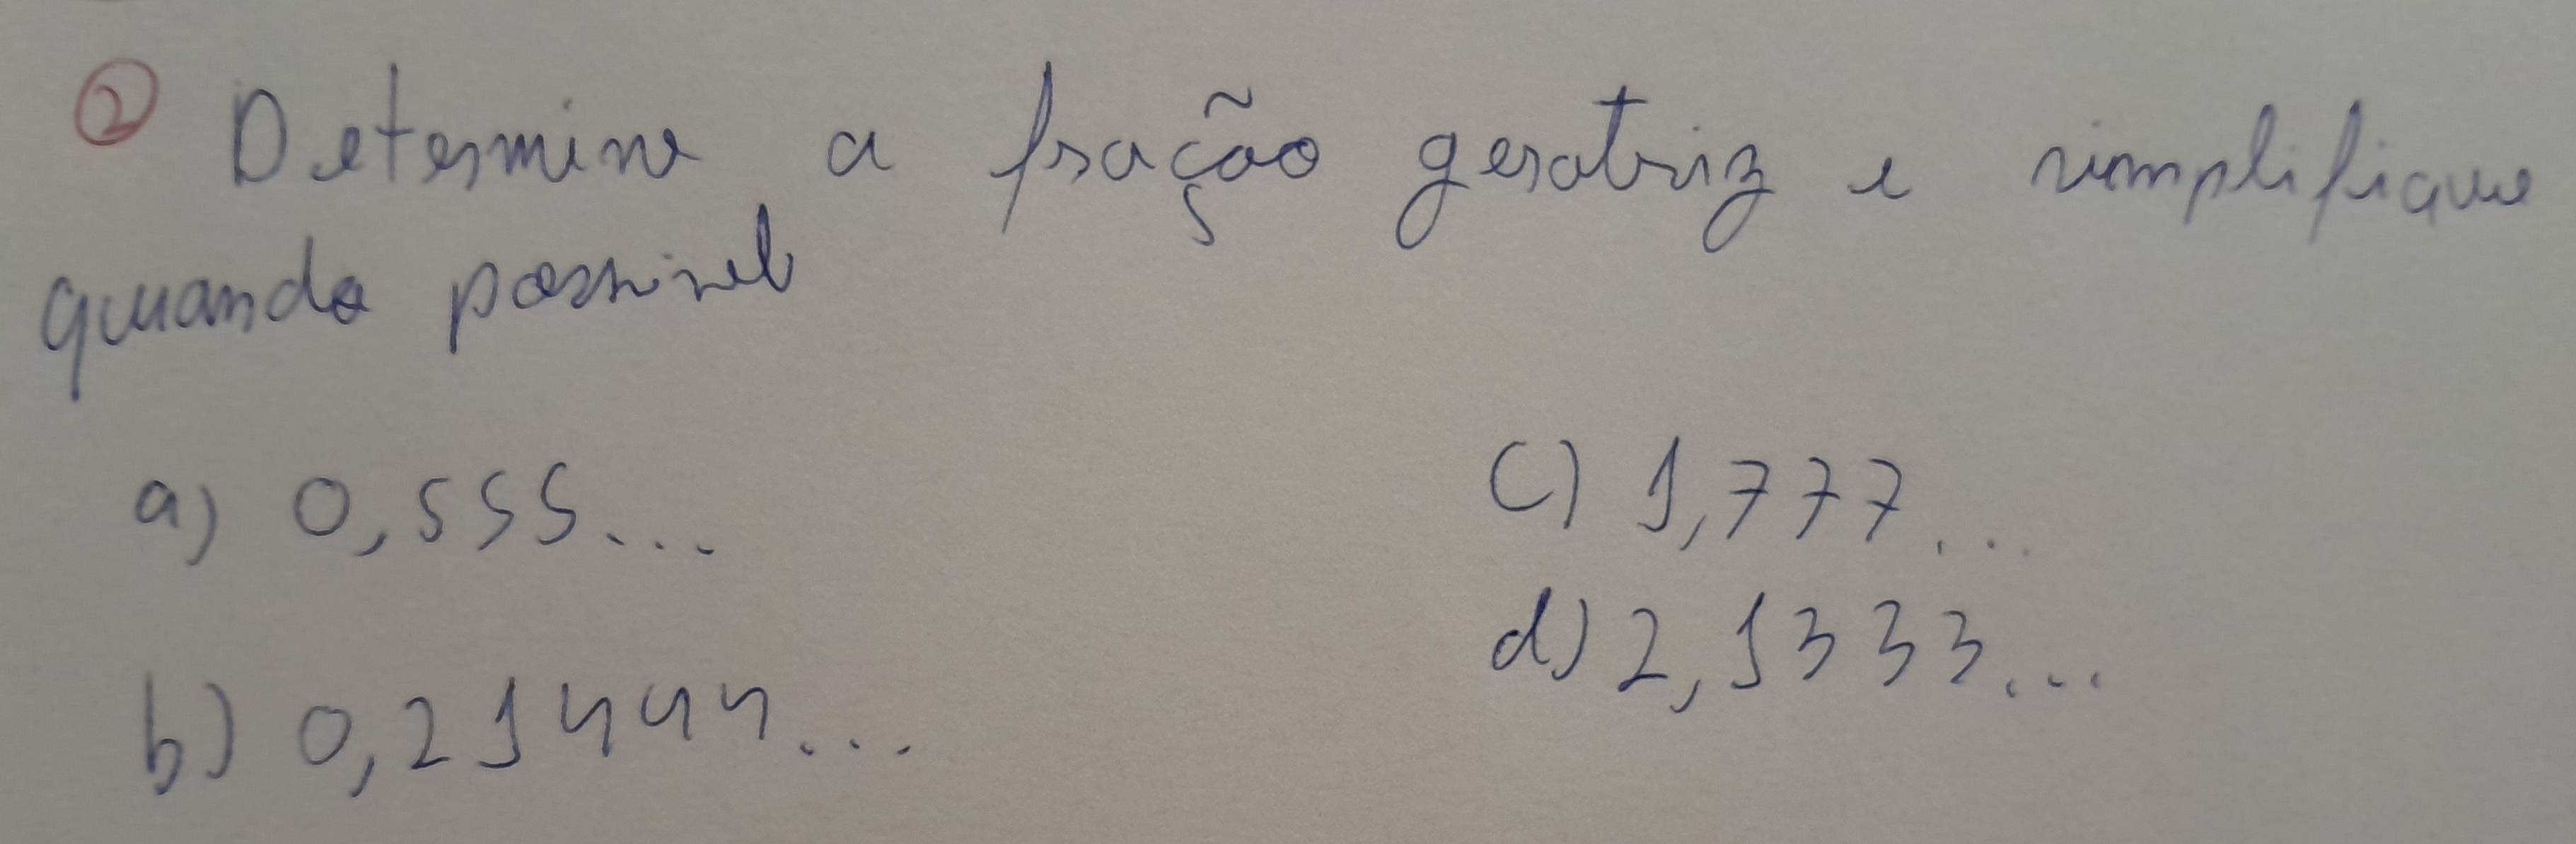 ② Determine a fração geratriz e simplifique
quando possivel
a) 0,555...
c) 1,777...
d) 2,1333...
b) 0,21444...